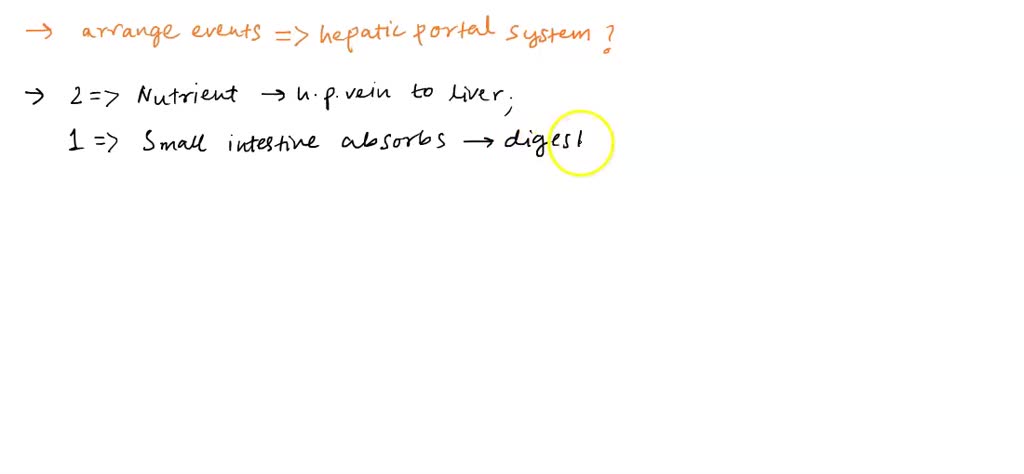 → arrange events => hepatic portal system?
→ 2 => Nutrient → h.p.vein to liver;
1 => Small intestine absorbs → digest